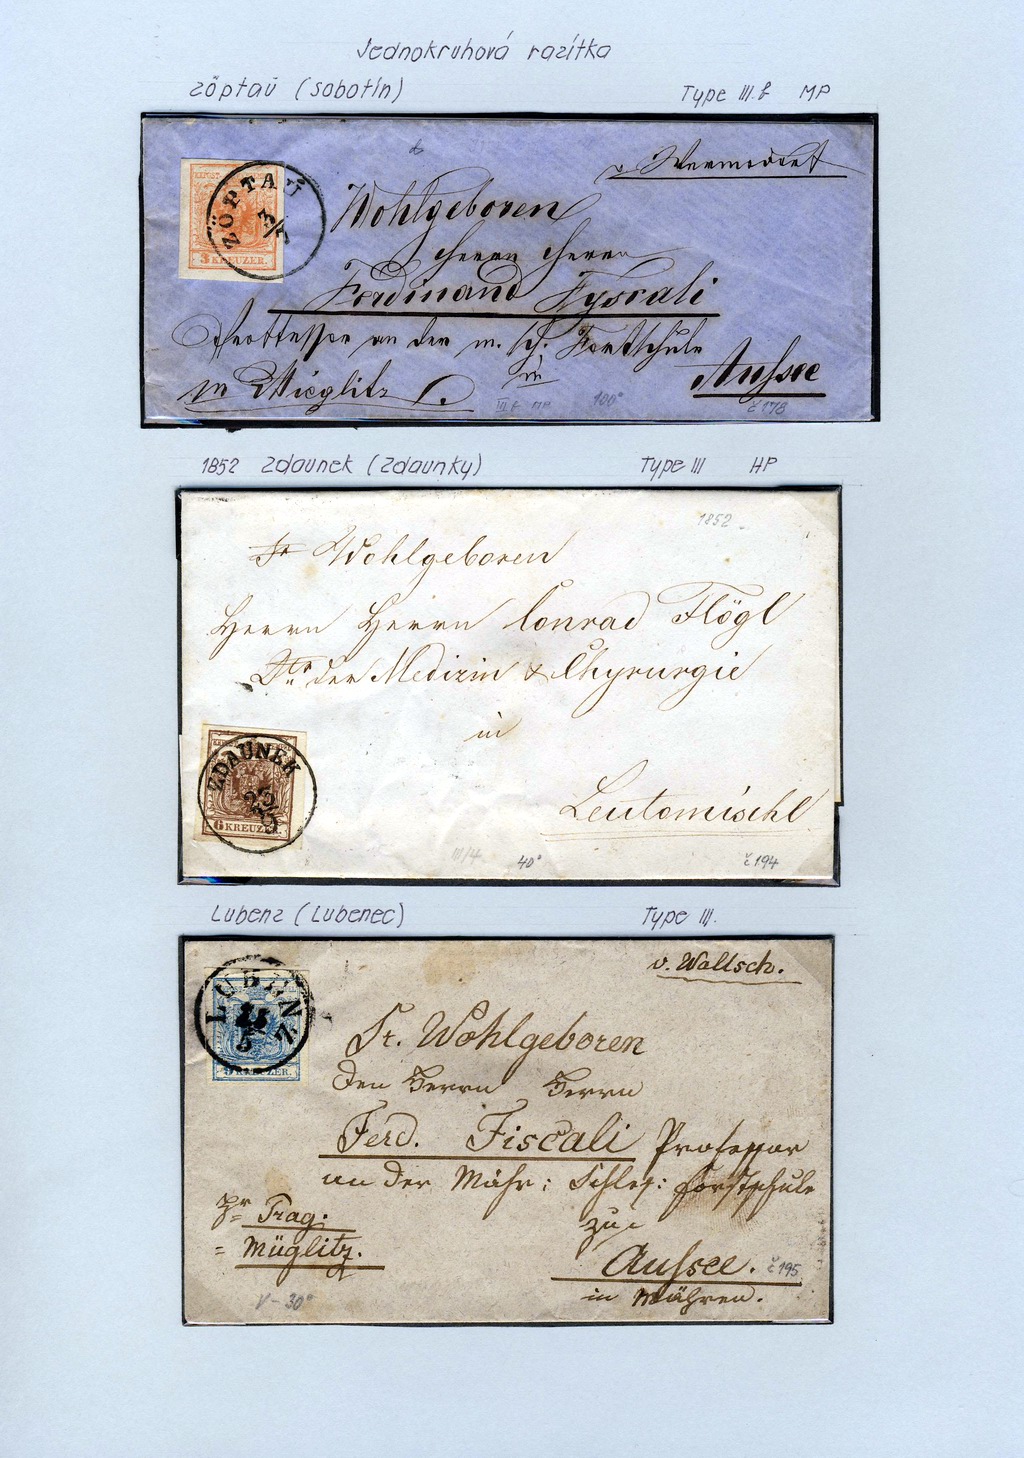 Jednokruhová razítka
Zöptau (Sobotín) Type III.b MP
ZÖPTAU
3/7
3 KREUZER.
Wohlgeboren
Herrn Herrn
Ferdinand Fyscali
Professor an der m. sch. Forstschule
in
Aussee
in Müglitz
III b MP 100° č178
1852 Zdaunek (Zdaunky) Type III HP
1852
Sr Wohlgeboren
Herrn Herrn Conrad Flögl
Dr der Medizin & Chyrurgie
in
ZDAUNEK
6 KREUZER
Leutomischl
III/4 40° č194
Lubenz (Lubenec) Type III.
v. Waltsch.
LUBENZ
9 KREUZER.
Sr. Wohlgeboren
den Herrn Herrn
Ferd. Fiscali Professor
an der Mähr: Schles: Forstschule
pr Prag: zu
= Müglitz.
Aussee. č195
in Mähren.
V - 30°